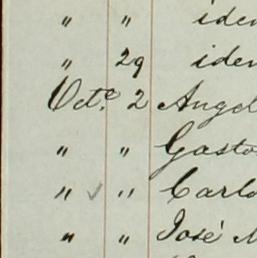 " " iden
" 29 iden
Octe. 2 Angel
" " Gasto
" ✓ " Carlo
" " José M